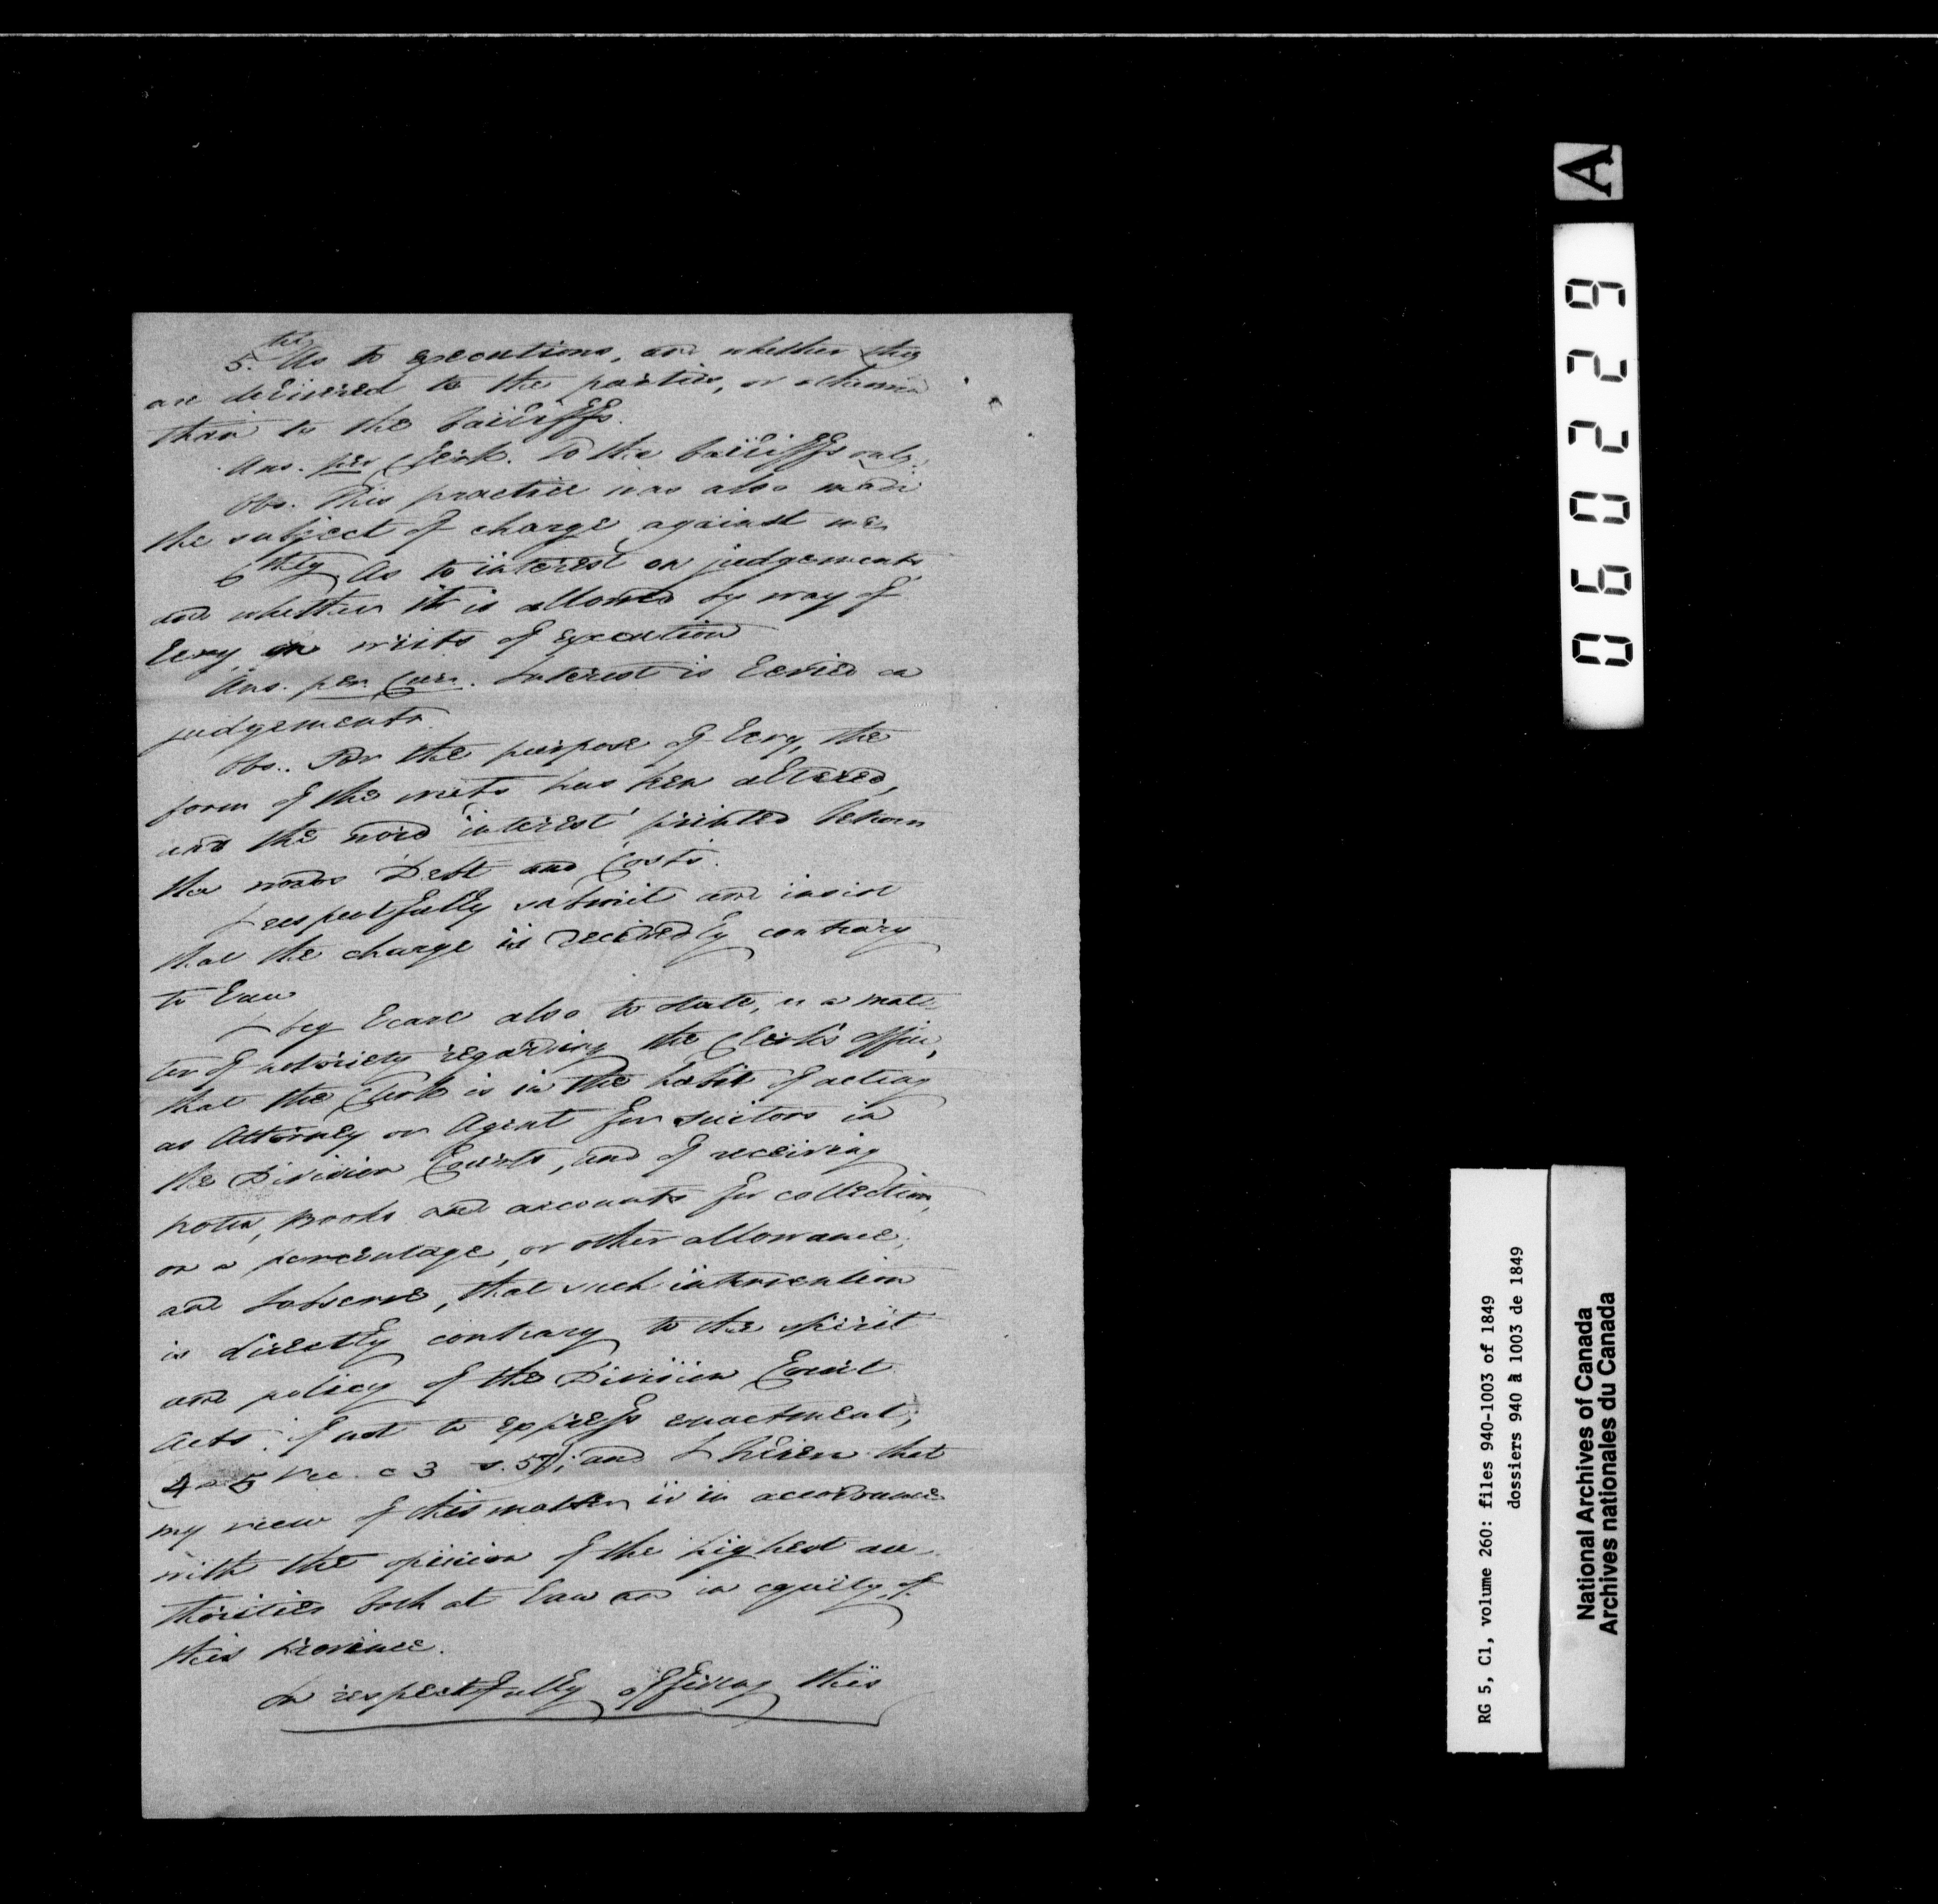 5.th As to executions, and whether they
are delivered to the parties, or otherwise
than to the bailiffs.
Ans. per Clerk. To the bailiffs only.
Obs. This practice was also made
the subject of charge against me.
6thly As to interest on judgements
and whether it is allowed by way of
levy, in writs of execution
Ans. per Cler. Interest is levied on
judgements.
Obs.. For the purpose of levy, the
form of the writs has been altered,
and the word 'interest' printed between
the words Debt and Costs.
I respectfully submit and insist
that the charge is decidedly contrary
to law
I beg leave also to state, as a mat-
ter of notoriety regarding the Clerk's office,
that the Clerk is in the habit of acting
as Attorney or Agent for suitors in
the Division Courts, and of receiving
notes, books and accounts for collection,
on a percentage, or other allowance;
and I observe, that such intervention
is directly contrary to the spirit
and policy of the Division Court
Acts, if not to express enactment,
(4 & 5 Vic. c 3 s. 57); and I believe that
my view of this matter is in accordance
with the opinion of the highest au-
thorities both at law and in equity, of
this province.
In respectfully offering this
A
060229
RG 5, C1, volume 260: files 940-1003 of 1849
dossiers 940 à 1003 de 1849
National Archives of Canada
Archives nationales du Canada